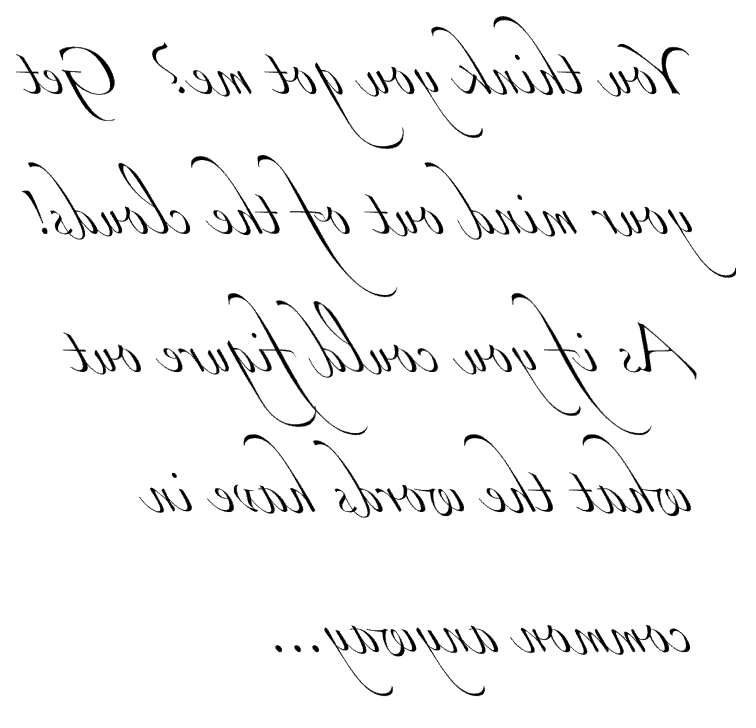 You think you got me? Get
your mind out of the clouds!
As if you could figure out
what the words have in
common anyway...